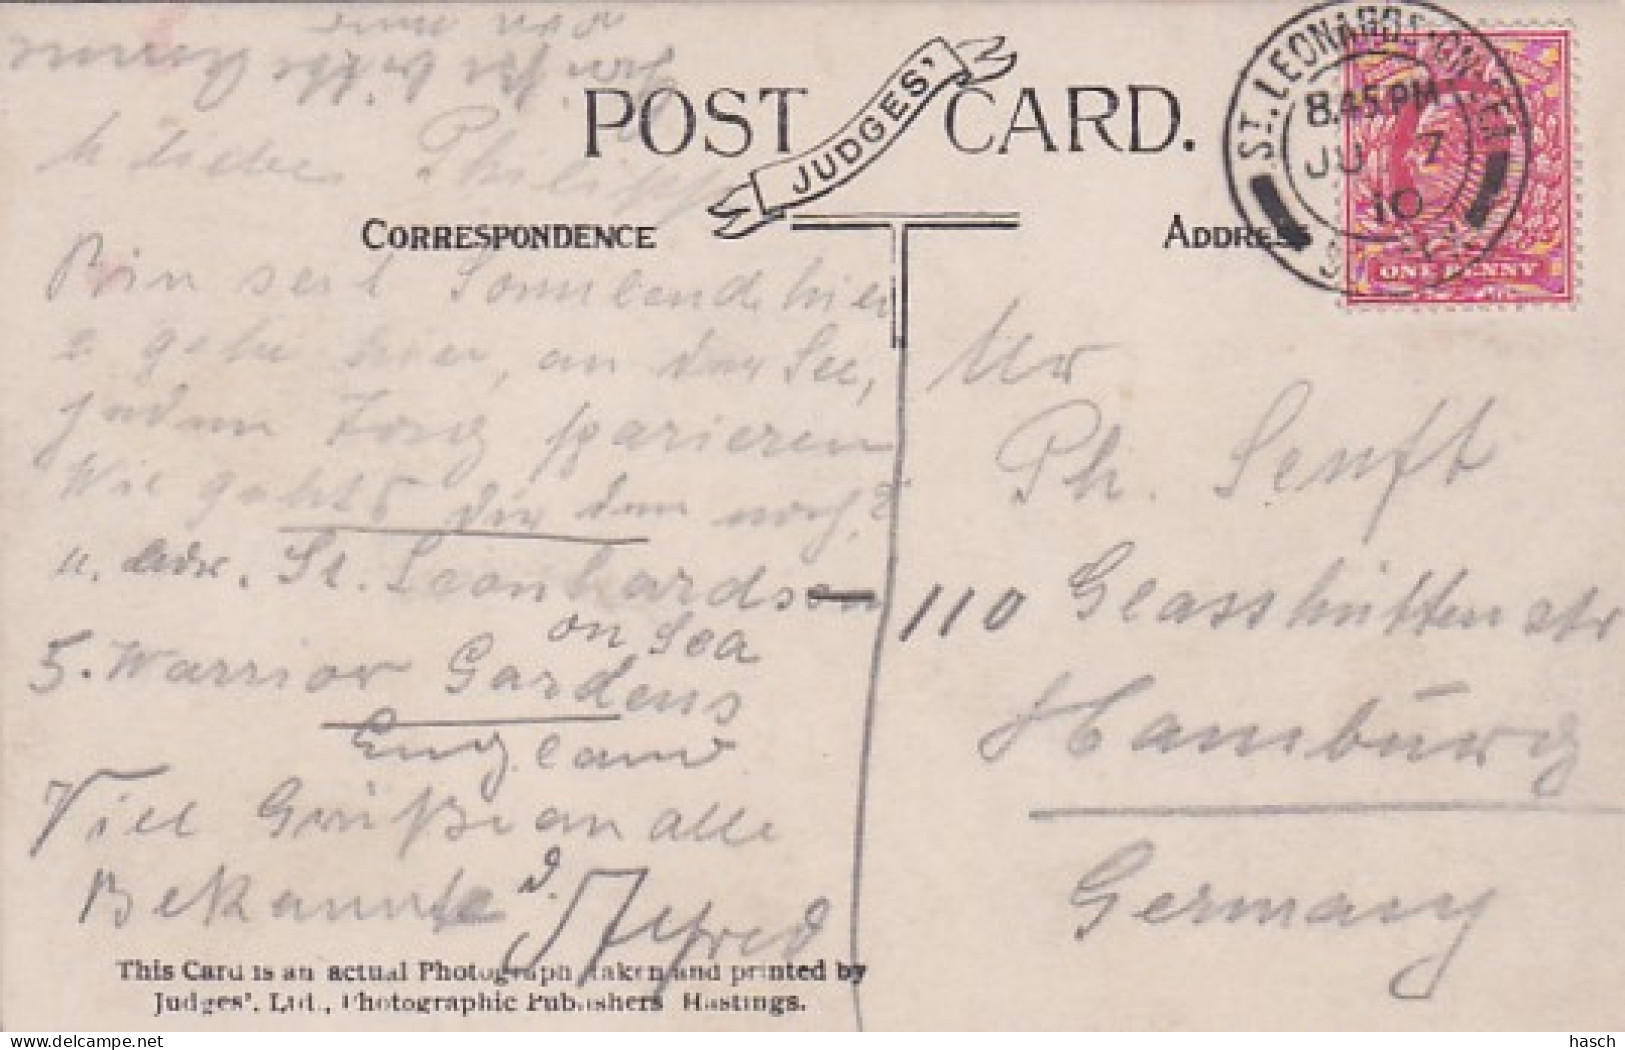 POST CARD.
JUDGES'
CORRESPONDENCE
ADDRESS
ST. LEONARDS-ON-SEA
8.45 PM
JU 7
10
ONE PENNY
Liebe Philipp
Bin seit Sonnabend hier
gehe hier, an der See,
jeden Tag spazieren
Wie gehts dir denn noch?
u. Adr. St. Leonhardson
on Sea
5. Warrior Gardens
England
Viel Grüße an alle
Bekannte d. Alfred
Mr
Ph. Senft
110 Glasshüttenstr
Hamburg
Germany
This Card is an actual Photograph taken and printed by
Judges', Ltd., Photographic Publishers Hastings.
hasch